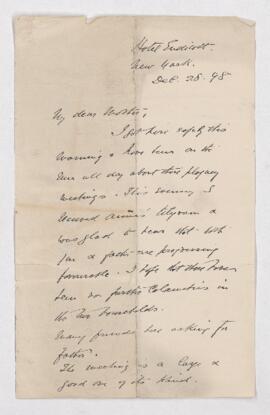 Hotel Endicott.
New York.
Dec. 28. 98
My dear Mother,
I got here safely this
morning & have been on the
run all day about these
meetings. This evening I
received Annie's telegram &
was glad to hear that both
& father are progressing
favourable. I hope that there have
been no further calamities in
the two households.
Many friends are asking for
father.
The meeting is a large &
good one of its kind.